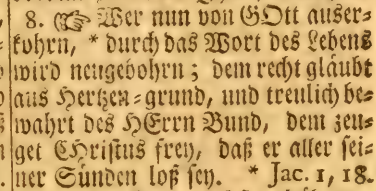 8. ☞ Wer nun von GOtt auser-
kohrn, * durch das Wort des Lebens
wird neugebohrn; dem recht gläubt
aus Hertzen-grund, und treulich be-
wahrt des HErrn Bund, dem zeu-
get Christus frey, daß er aller sei-
ner Sünden loß sey. * Jac. 1, 18.